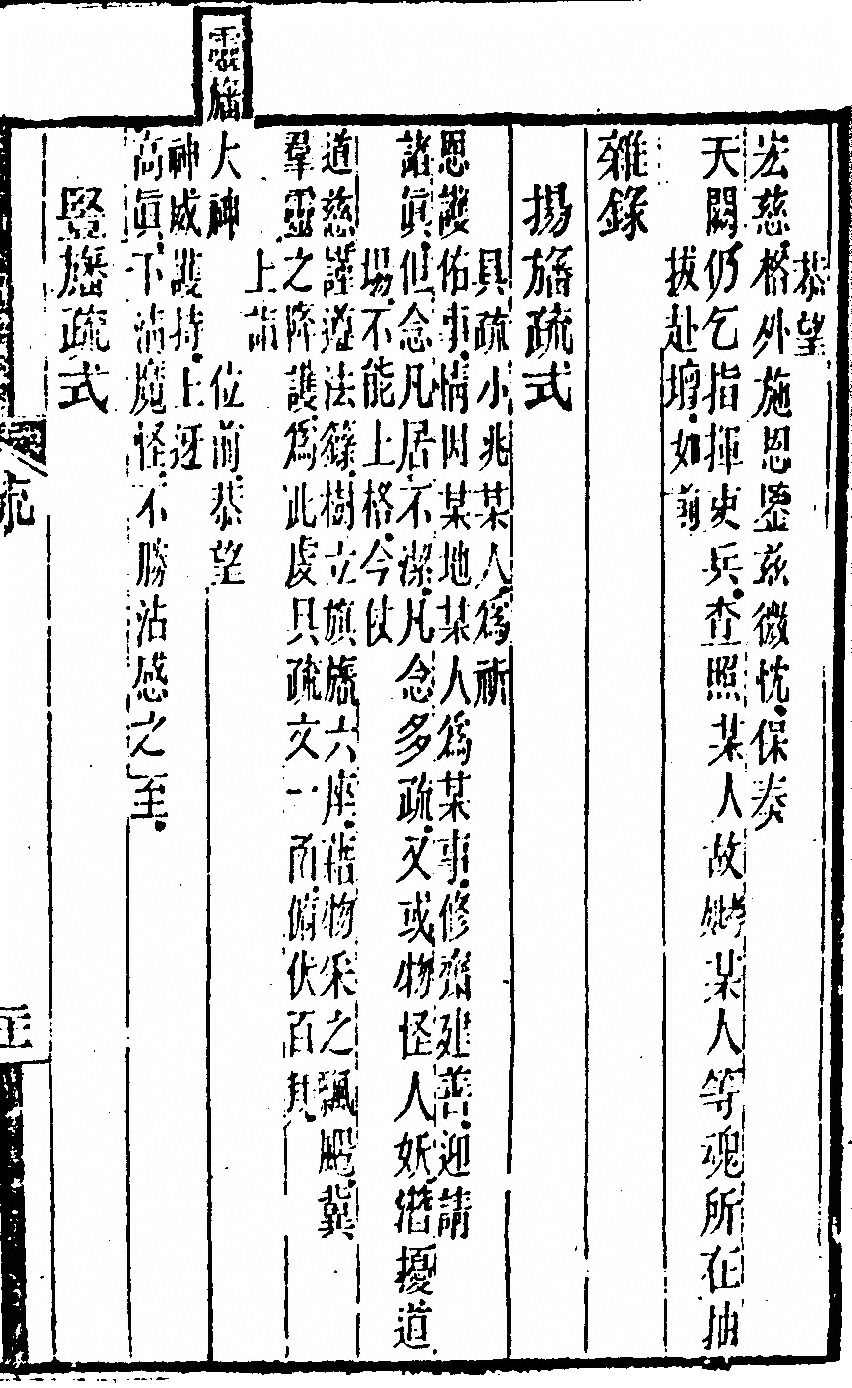 恭望
宏慈格外施恩鑒兹微忱保奏
天闕仍乞指揮吏兵查照某人故姆某人等魂所在抽
拔赴壇如前
雜錄
揚旛疏式
具疏小兆某人爲祈
恩護佑事情因某地某人爲某事修齋建善迎請
諸眞但念凡居不潔凡念多疏又或物怪人妖潛擾道
場不能上格今伏
道慈謹遵法籙樹立旗旛六座藉物采之飄颺冀
羣靈之降護爲此虔具疏文一函俯伏百拜
上詣
靈旛大神 位前恭望
神威護持上迓
高眞下滌魔怪不勝沾感之至
豎旛疏式